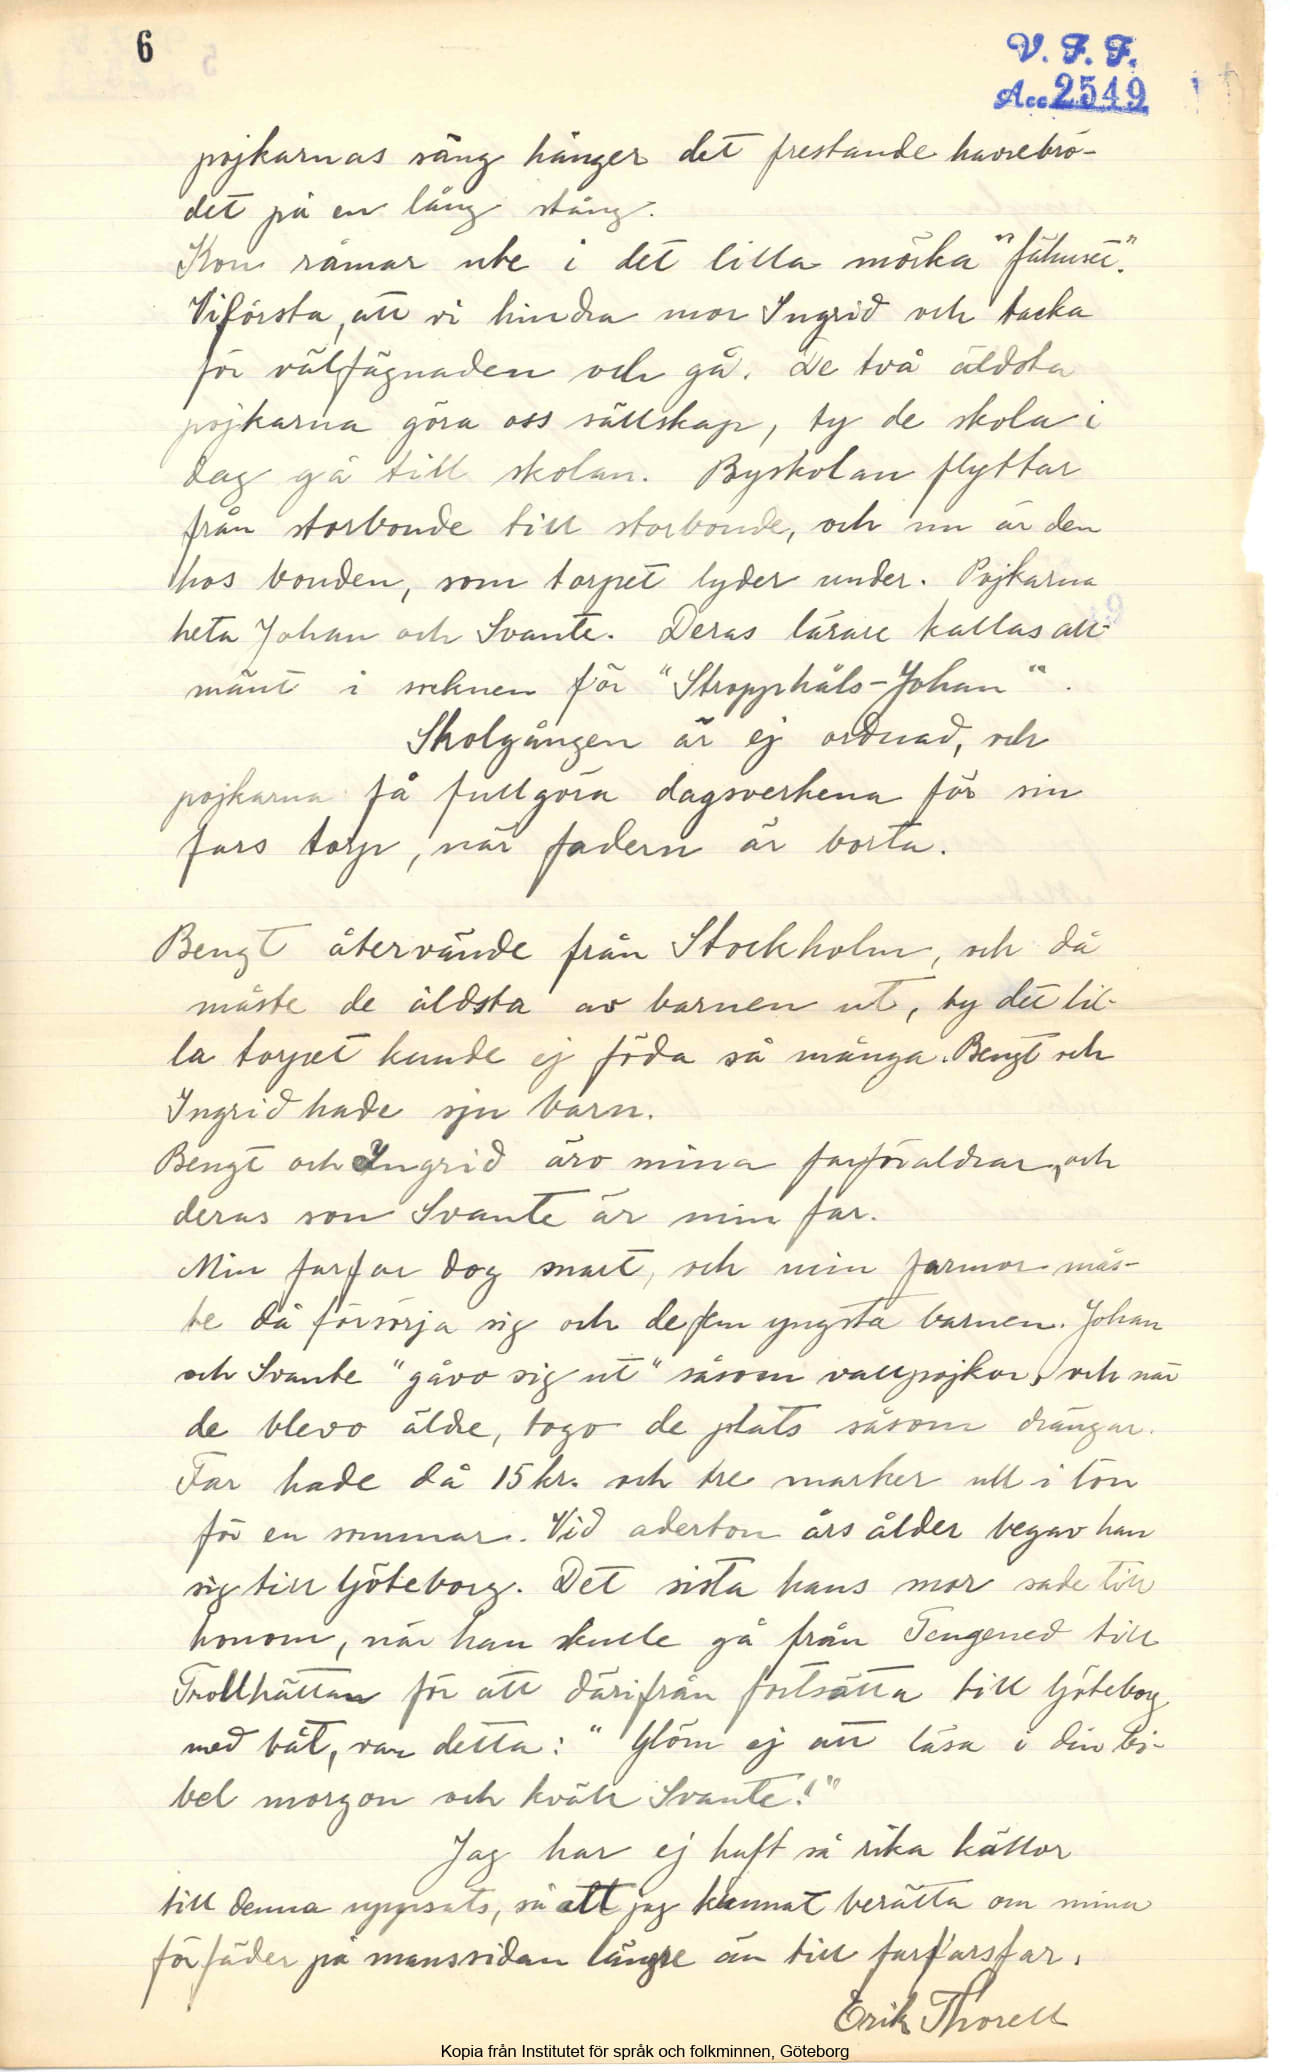 6
V. F. F.
Acc 2549
pojkarnas säng hänger det frestande havrebrö-
det på en lång stång.
Kon råmar ute i det lilla mörka "fähuset".
Vi förstå, att vi hindra mor Ingrid och tacka
för välfägnaden och gå. De två äldsta
pojkarna göra oss sällskap, ty de skola i
dag gå till skolan. Byskolan flyttar
från storbonde till storbonde, och nu är den
hos bonden, som torpet lyder under. Pojkarna
heta Johan och Svante. Deras lärare kallas all-
mänt i socknen för "Stropphåls-Johan".
Skolgången är ej ordnad, och
pojkarna få fullgöra dagsverkena för sin
fars torp, när fadern är borta.
Bengt återvände från Stockholm, och då
måste de äldsta av barnen ut, ty det lil-
la torpet kunde ej föda så många. Bengt och
Ingrid hade sju barn.
Bengt och Ingrid äro mina farföräldrar, och
deras son Svante är min far.
Min farfar dog snart, och min farmor mås-
te då försörja sig och de fem yngsta barnen. Johan
och Svante "gåvo sig ut" såsom vallpojkar, och när
de blevo äldre, togo de plats såsom drängar.
Far hade då 15 kr. och tre marker ull i lön
för en sommar. Vid aderton års ålder begav han
sig till Göteborg. Det sista hans mor sade till
honom, när han skulle gå från Tengened till
Trollhättan för att därifrån fortsätta till Göteborg
med båt, var detta: "Glöm ej att läsa i din bi-
bel morgon och kväll Svante!"
Jag har ej haft så rika källor
till denna uppsats, så att jag kunnat berätta om mina
förfäder på manssidan längre än till farfarsfar.
Erik Thorell
Kopia från Institutet för språk och folkminnen, Göteborg